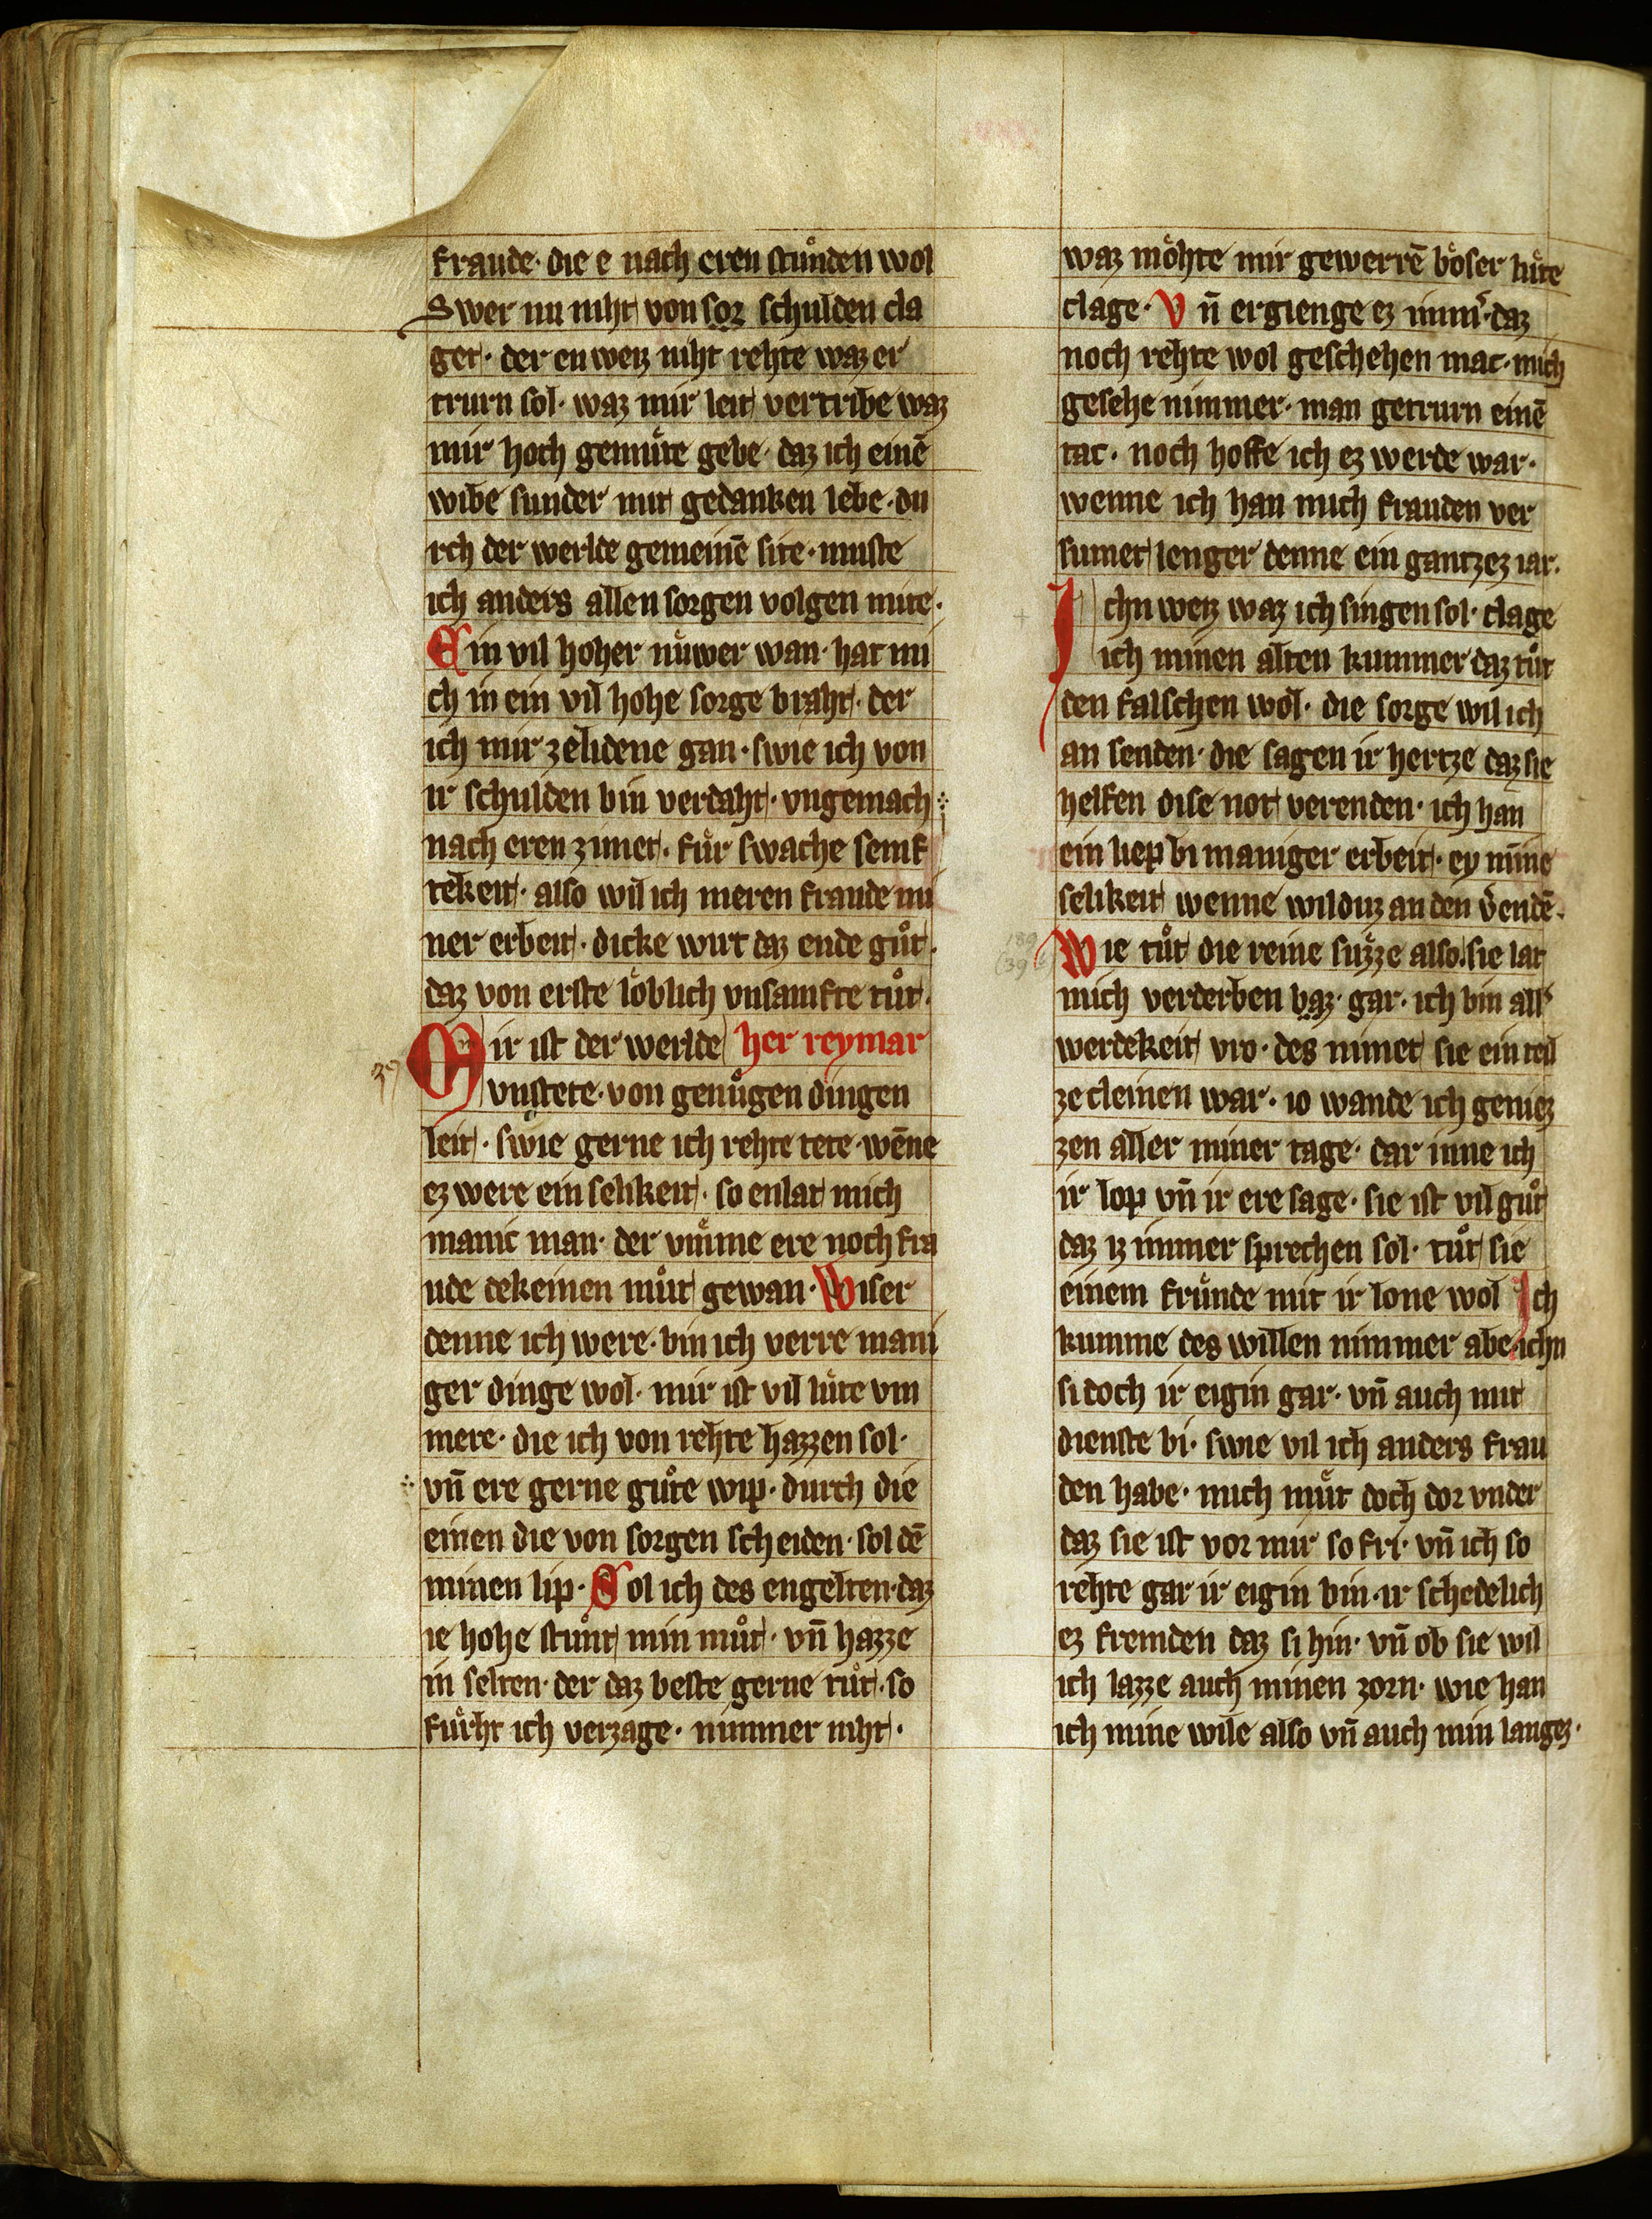 fraude· die e nach eren stuͦnden wol
Swer nu niht von sor schulden cla
get· der en weiz niht rehte waz er
trurn sol· waz mir leit vertribe waz
mir hoch gemuͤte gebe· daz ich einē
wibe sunder mit gedanken lebe· du
rch der werlde gemeinē site· muste
ich anders allen sorgen volgen mite·
Ein vil hoher nuͤwer wan· hat mi
ch in ein vil hohe sorge braht· der
ich mir ze lidene gan· swie ich von
ir schulden bin verdaht· vngemach
nach eren zimet· fuͤr swache semf
tekeit· also wil ich meren fraude mi
ner erbeit· dicke wirt daz ende guͦt·
daz von erste loͤblich vnsamfte tuͦt·
Mir ist der werlde her reymar
vnstete· von genuͦgen dingen
leit· swie gerne ich rehte tete· wēne
ez were ein selikeit· so enlat mich
manic man· der vmͤme ere noch fra
ude dekeinen muͦt gewan· Wiser
denne ich were· bin ich verre mani
ger dinge wol· mir ist vil luͤte vm
mere· die ich von rehte hazzen sol·
vn̄ ere gerne guͦte wip· durch die
einen die von sorgen scheiden· sol dē
minen lip· Sol ich des engelten· daz
ie hohe stuͦnt min muͦt· vn̄ hazze
in selten· der daz beste gerne tuͦt· so
fuͤrht ich verzage· nimmer niht·
waz moͤhte mir gewerrē boͤser luͤte
clage· Vn̄ ergienge ez nim̄· daz
noch rehte wol geschehen mac· mich
gesehe nimmer· man getrurn einē
tac· noch hoffe ich ez werde war·
wenne ich han mich frauden ver
sumet lenger denne ein gantzez iar·
Ichn weiz waz ich singen sol· clage
ich minen alten kummer daz tuͦt
den falschen wol· die sorge wil ich
an senden· die sagen ir hertze daz sie
helfen dise not verenden· ich han
ein liep bi maniger erbeit· ey mīne
selikeit wenne wilduz an den v̓endē·
Wie tuͦt die reine suͤzze also· sie lat
mich verderben baz· gar· ich bin all̓
werdekeit vro· des nimet sie ein teil
ze cleinen war· io wande ich geniez
zen aller miner tage· dar inne ich
ir lop vn̄ ir ere sage· sie ist vil guͦt
daz iz immer sprechen sol· tuͦt sie
einem fruͤnde mit ir lone wol Ich
kumme des willen nimmer abe· ichn
si doch ir eigin gar· vn̄ auch mit
dienste bi· swie vil ich anders frau
den habe· mich muͤt doch dor vnder
daz sie ist vor mir so fri· vn̄ ich so
rehte gar ir eigin bin· ir schedelich
ez fremden daz si hin· vn̄ ob sie wil
ich lazze auch minen zorn· wie han
ich mine wile also vn̄ auch min langez·